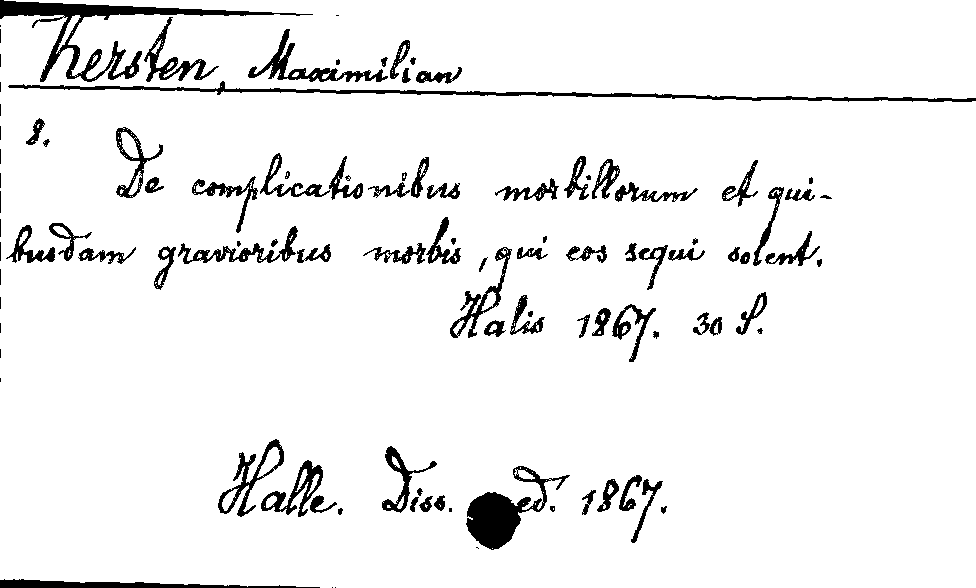 Kersten, Maximilian
8.
De complicationibus morbillorum et qui-
busdam gravioribus morbis, qui eos sequi solent.
Halis 1867. 30 S.
Halle. Diss. ed. 1867.